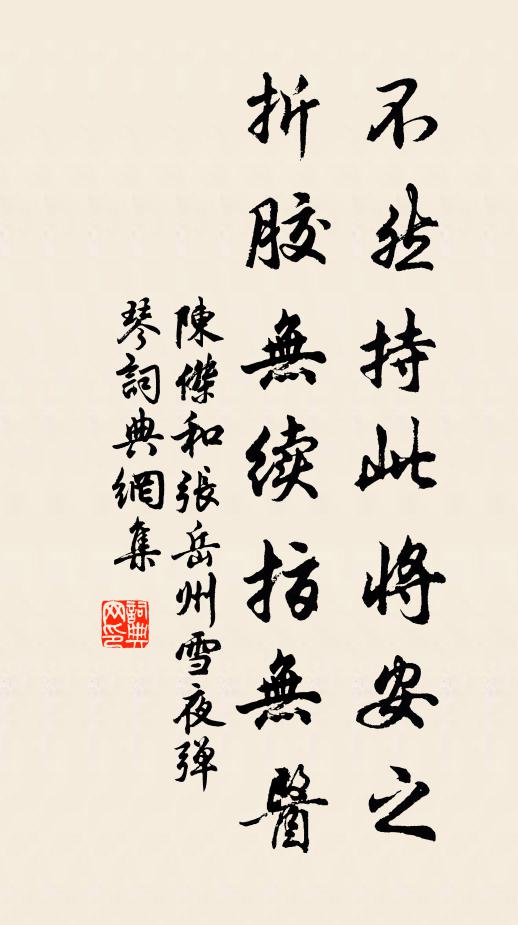 不然持此將安之
折膠無续指無醫
陳傑和張岳州雪夜弹
琴詞典網集
詞典网印